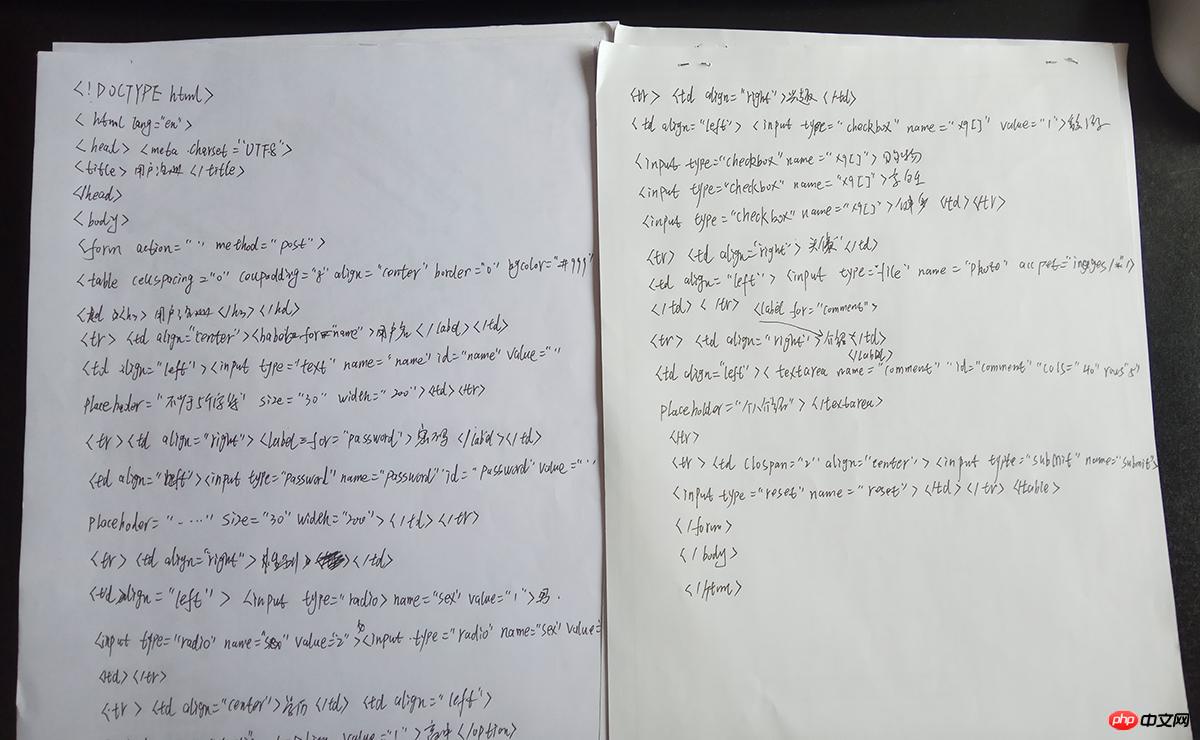 <!DOCTYPE html>
<html lang="en">
<head> <meta charset="UTF8">
<title>用户注册</title>
</head>
<body>
<form action=" " method="post">
<table align="center" border="0" bgcolor="#999"
<h3>用户注册</h3>
<tr> <td align="center"> for="name">用户名</label></td>
<td align="left"><input type="text" name="name" id="name" value=" "
Placehoder="不少于5个字符" size="30" width="200"><td><tr>
<tr><td align="right"><label for="password">密码</label></td>
<td align="left"><input type="password" name="password" id="password" value=" "
Placehoder="-...." size="30" width="200"></td></tr>
<tr> <td align="right"> </td>
<td align="left"> <input type="radio> name="sex" value="1">男.
<input type="radio" value="2"><input type="radio" name="sex" value=
<td></tr>
<tr> <td align="center">学历</td> <td align="left">
value="1">高中</option>
<tr> <td align="right">兴趣</td>
<td align="left"> <input type="checkbox" name="xq[]" value="1">
<input type="checkbox" name="xq[]">
<input type="checkbox" name="xq[]">
<input type="checkbox" name="xq[]"> <td></tr>
<tr> <td align="right">头像</td>
<td align="left"> <input type="file" name="Photo"
</td> </tr> <label for="comment">
<tr> <td align="right">介绍</td>
</label>
<td align="left"><textarea name="comment" id="comment" "cols="40" rows"5"
Placeholder="个人介绍"></textarea>
<tr>
<tr><td clospan="2" align="center"><input type="submit" name="submit">
<input type="reset" name="reset"></td></tr> <table>
</form>
</body>
</html>
php中文网